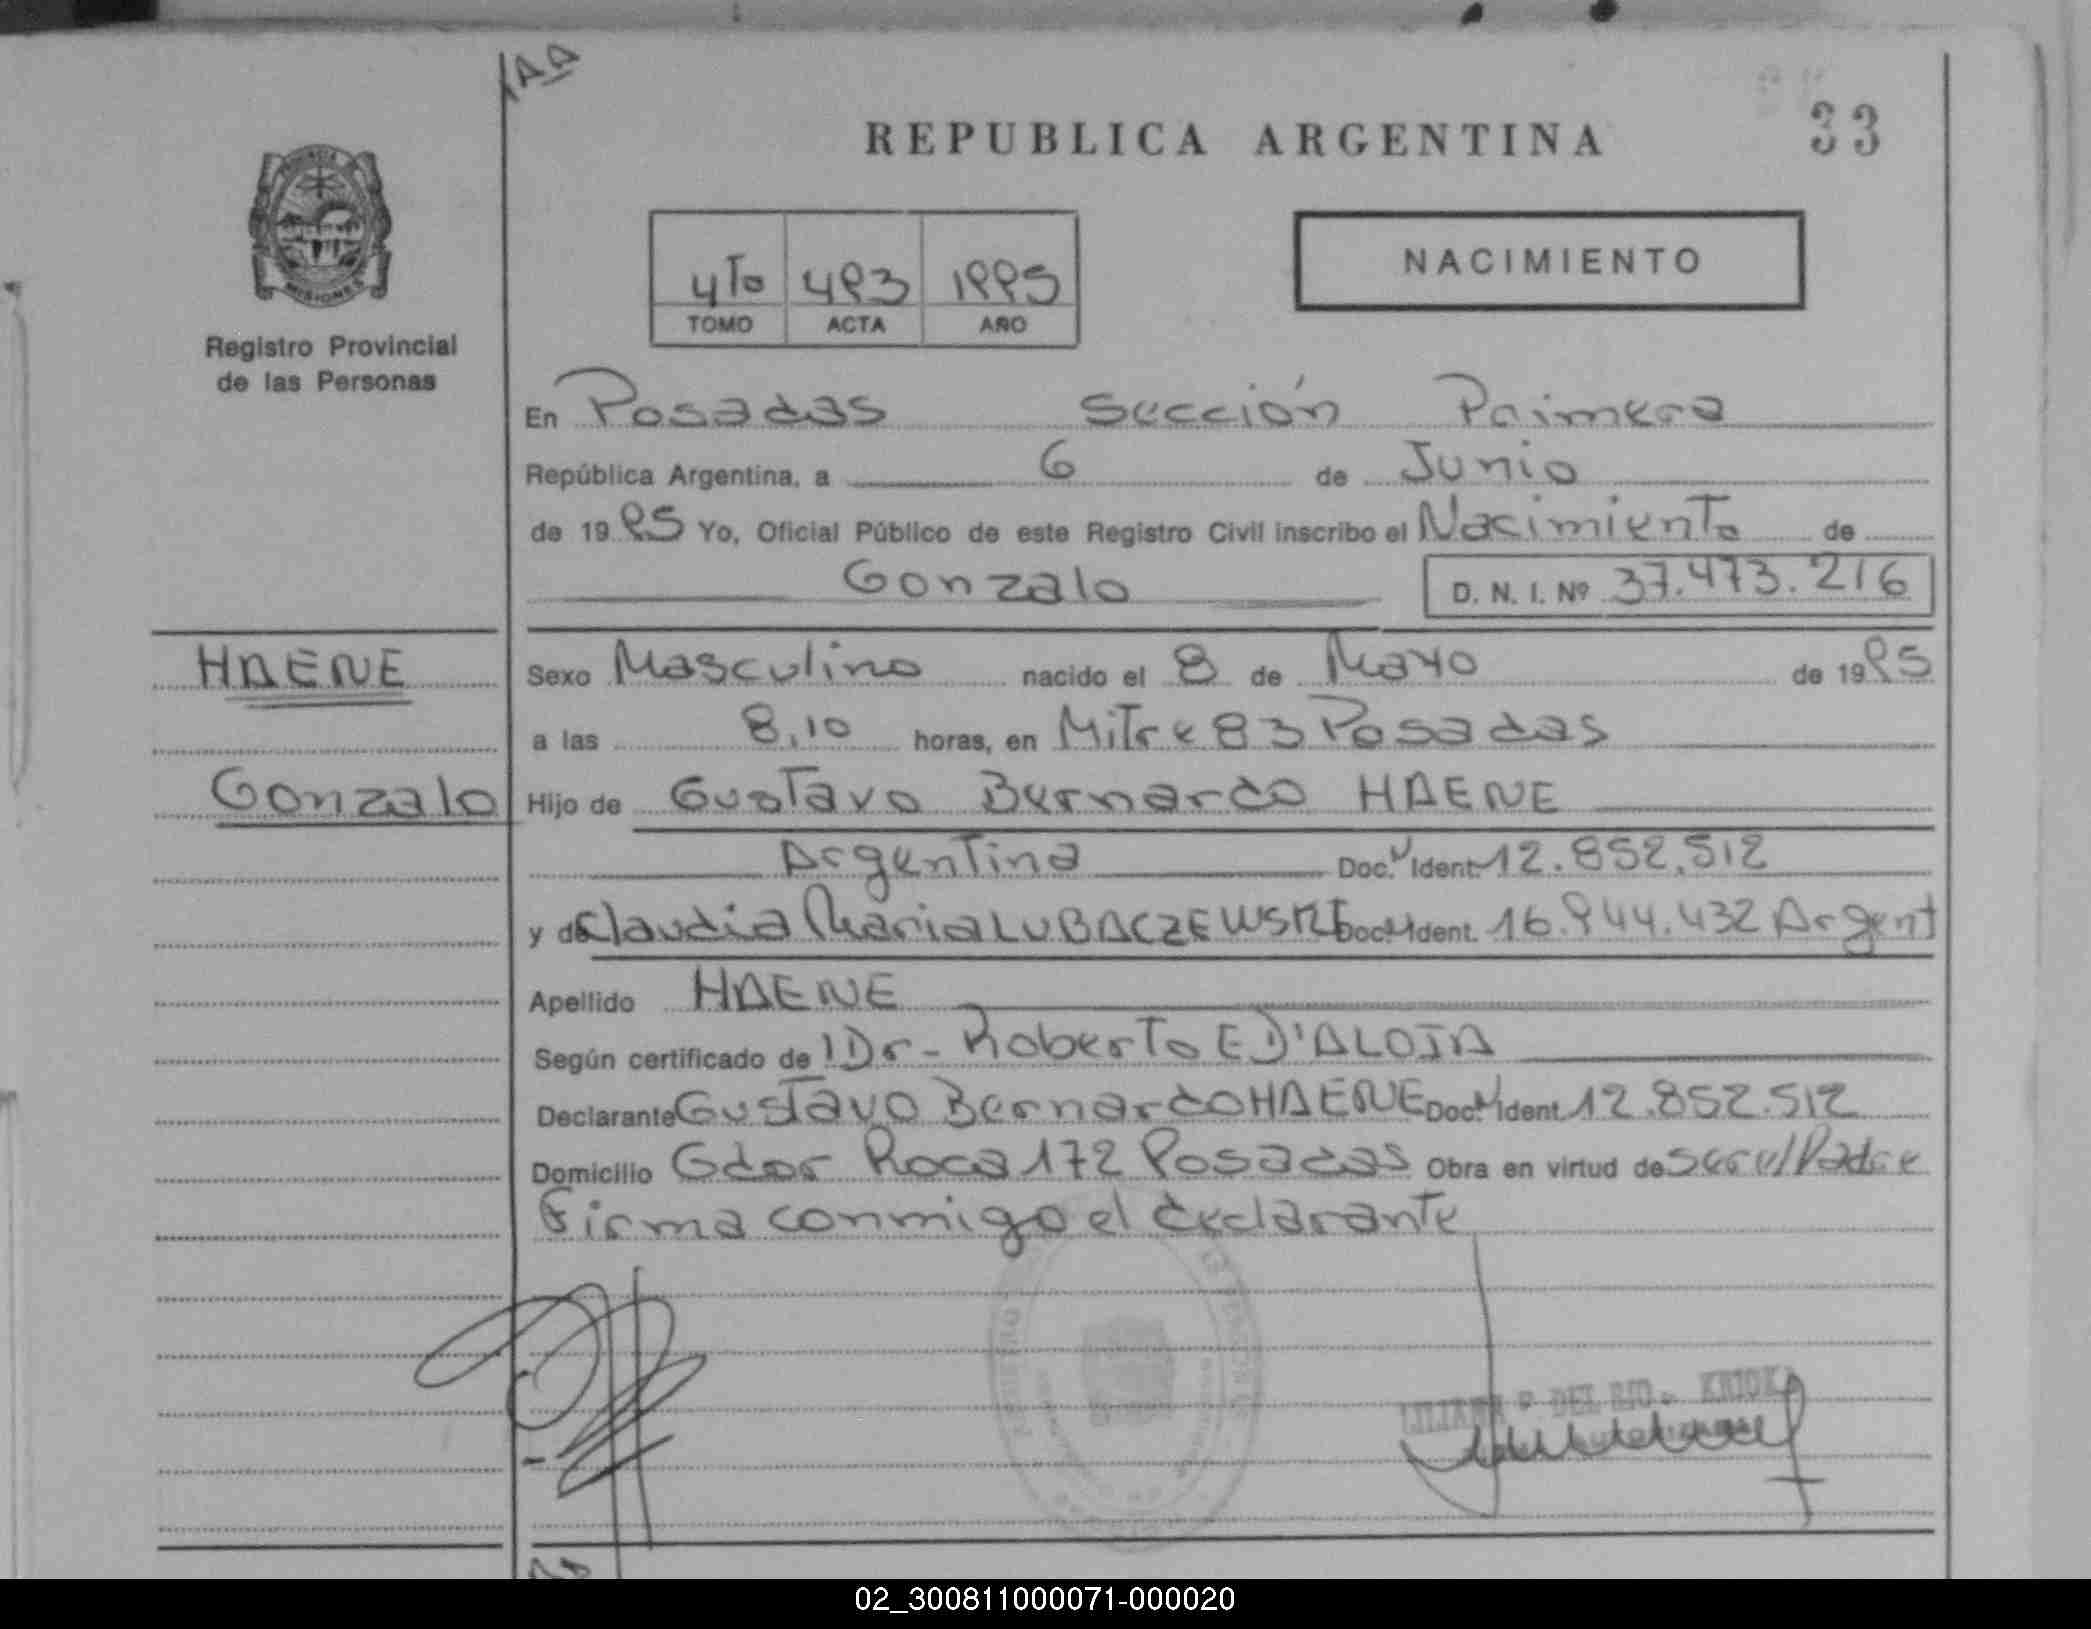 AA
REPUBLICA ARGENTINA
33
MISIONES
Registro Provincial
de las Personas
4To 493 1995
TOMO ACTA AÑO
NACIMIENTO
En Posadas Sección Primera
República Argentina, a 6 de Junio
de 1995 Yo, Oficial Público de este Registro Civil inscribo el Nacimiento de
Gonzalo D. N. I. Nº 37.473.216
HAENE
Gonzalo
Sexo Masculino nacido el 8 de Mayo de 1995
a las 8,10 horas, en Mitre 83 Posadas
Hijo de Gustavo Bernardo HAENE
Argentina Doc. Ident. 12.852.512
y de Claudia Maria LUBACZEWSKI Doc. Ident. 16.944.432 Argent
Apellido HAENE
Según certificado de Dr - Roberto E D'ALOIA
Declarante Gustavo Bernardo HAENE Doc. Ident. 12.852.512
Domicilio Gdor Roca 172 Posadas Obra en virtud de ser el Padre
Firma conmigo el declarante
LILIANA DEL
02_300811000071-000020